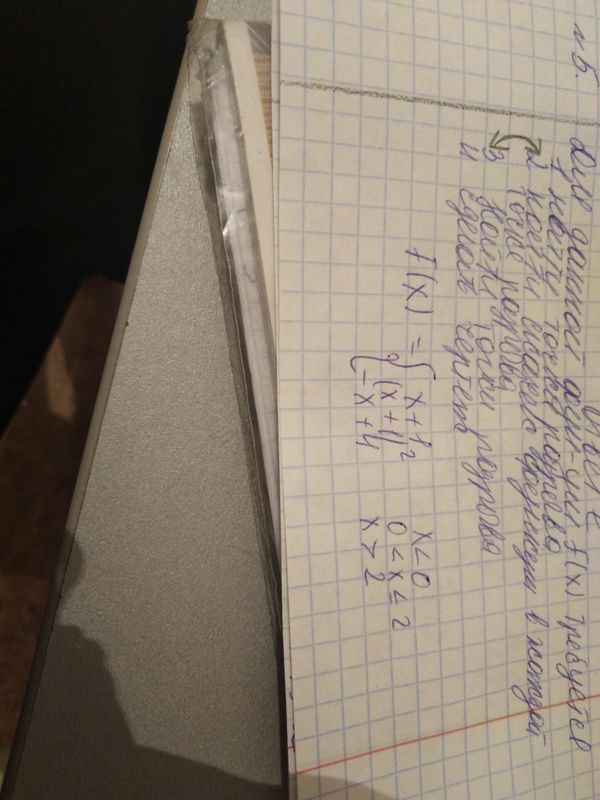 №5.
Для данной функции f(x) требуется
1 найти точки разрыва
2 найти скачок функции в каждой
точке разрыва
3 найти точки разрыва
и сделать чертёж
f(x) = { x+1 x<0
(x+1)² 0<x≤2
-x+4 x>2